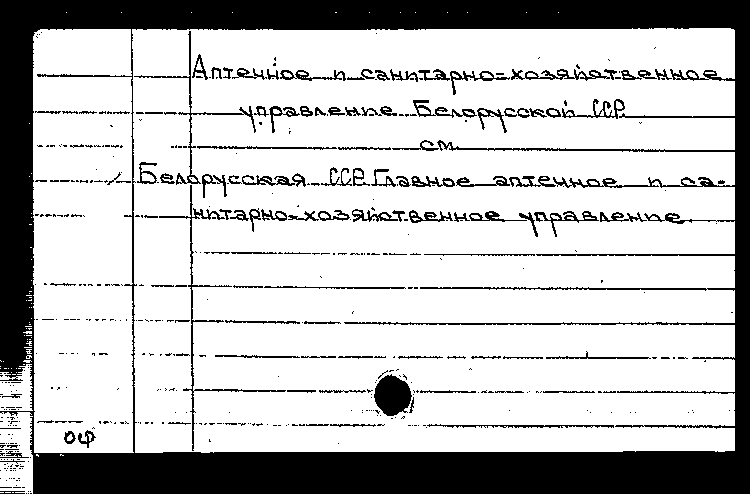 Аптечное и санитарно-хозяйственное
управление Белорусской ССР
см.
Белорусская ССР. Главное аптечное и са-
нитарно-хозяйственное управление.
ОФ